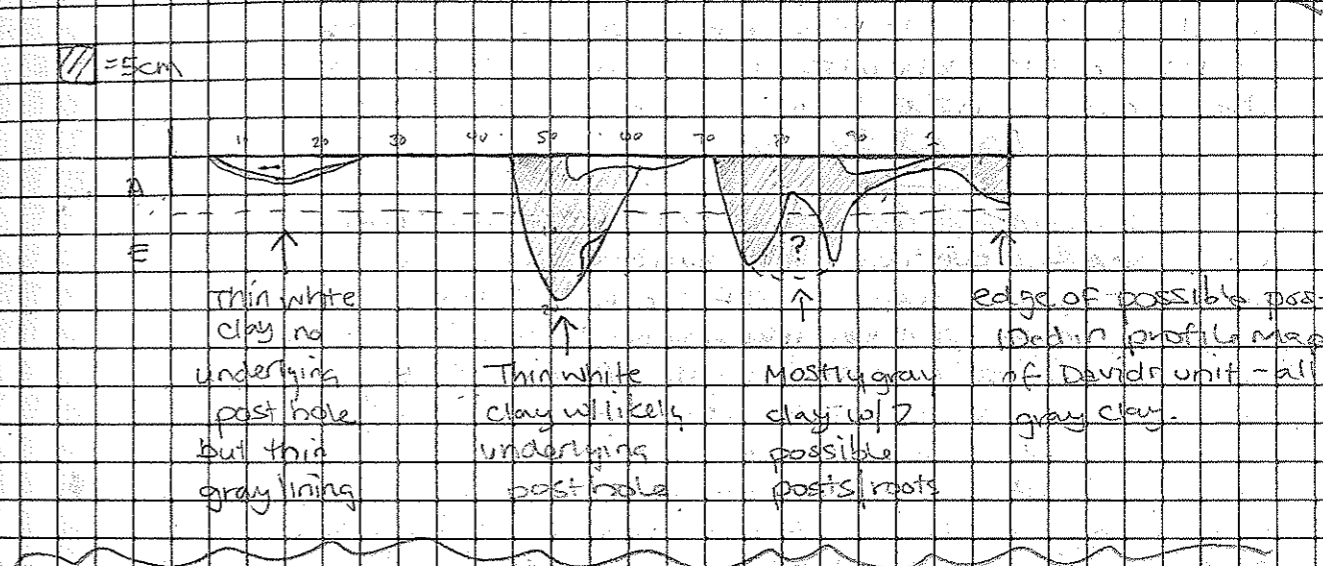 =5cm
10 20 30 40 50 60 70 80 90 1
A
E
?
Thin white
clay no
underlying
post hole
but thin
gray lining
Thin white
clay w/ likely
underlying
post hole
Mostly gray
clay w/ 2
possible
posts/roots
edge of possible pos
IDed in profile Map
of Davids unit - all
gray clay.